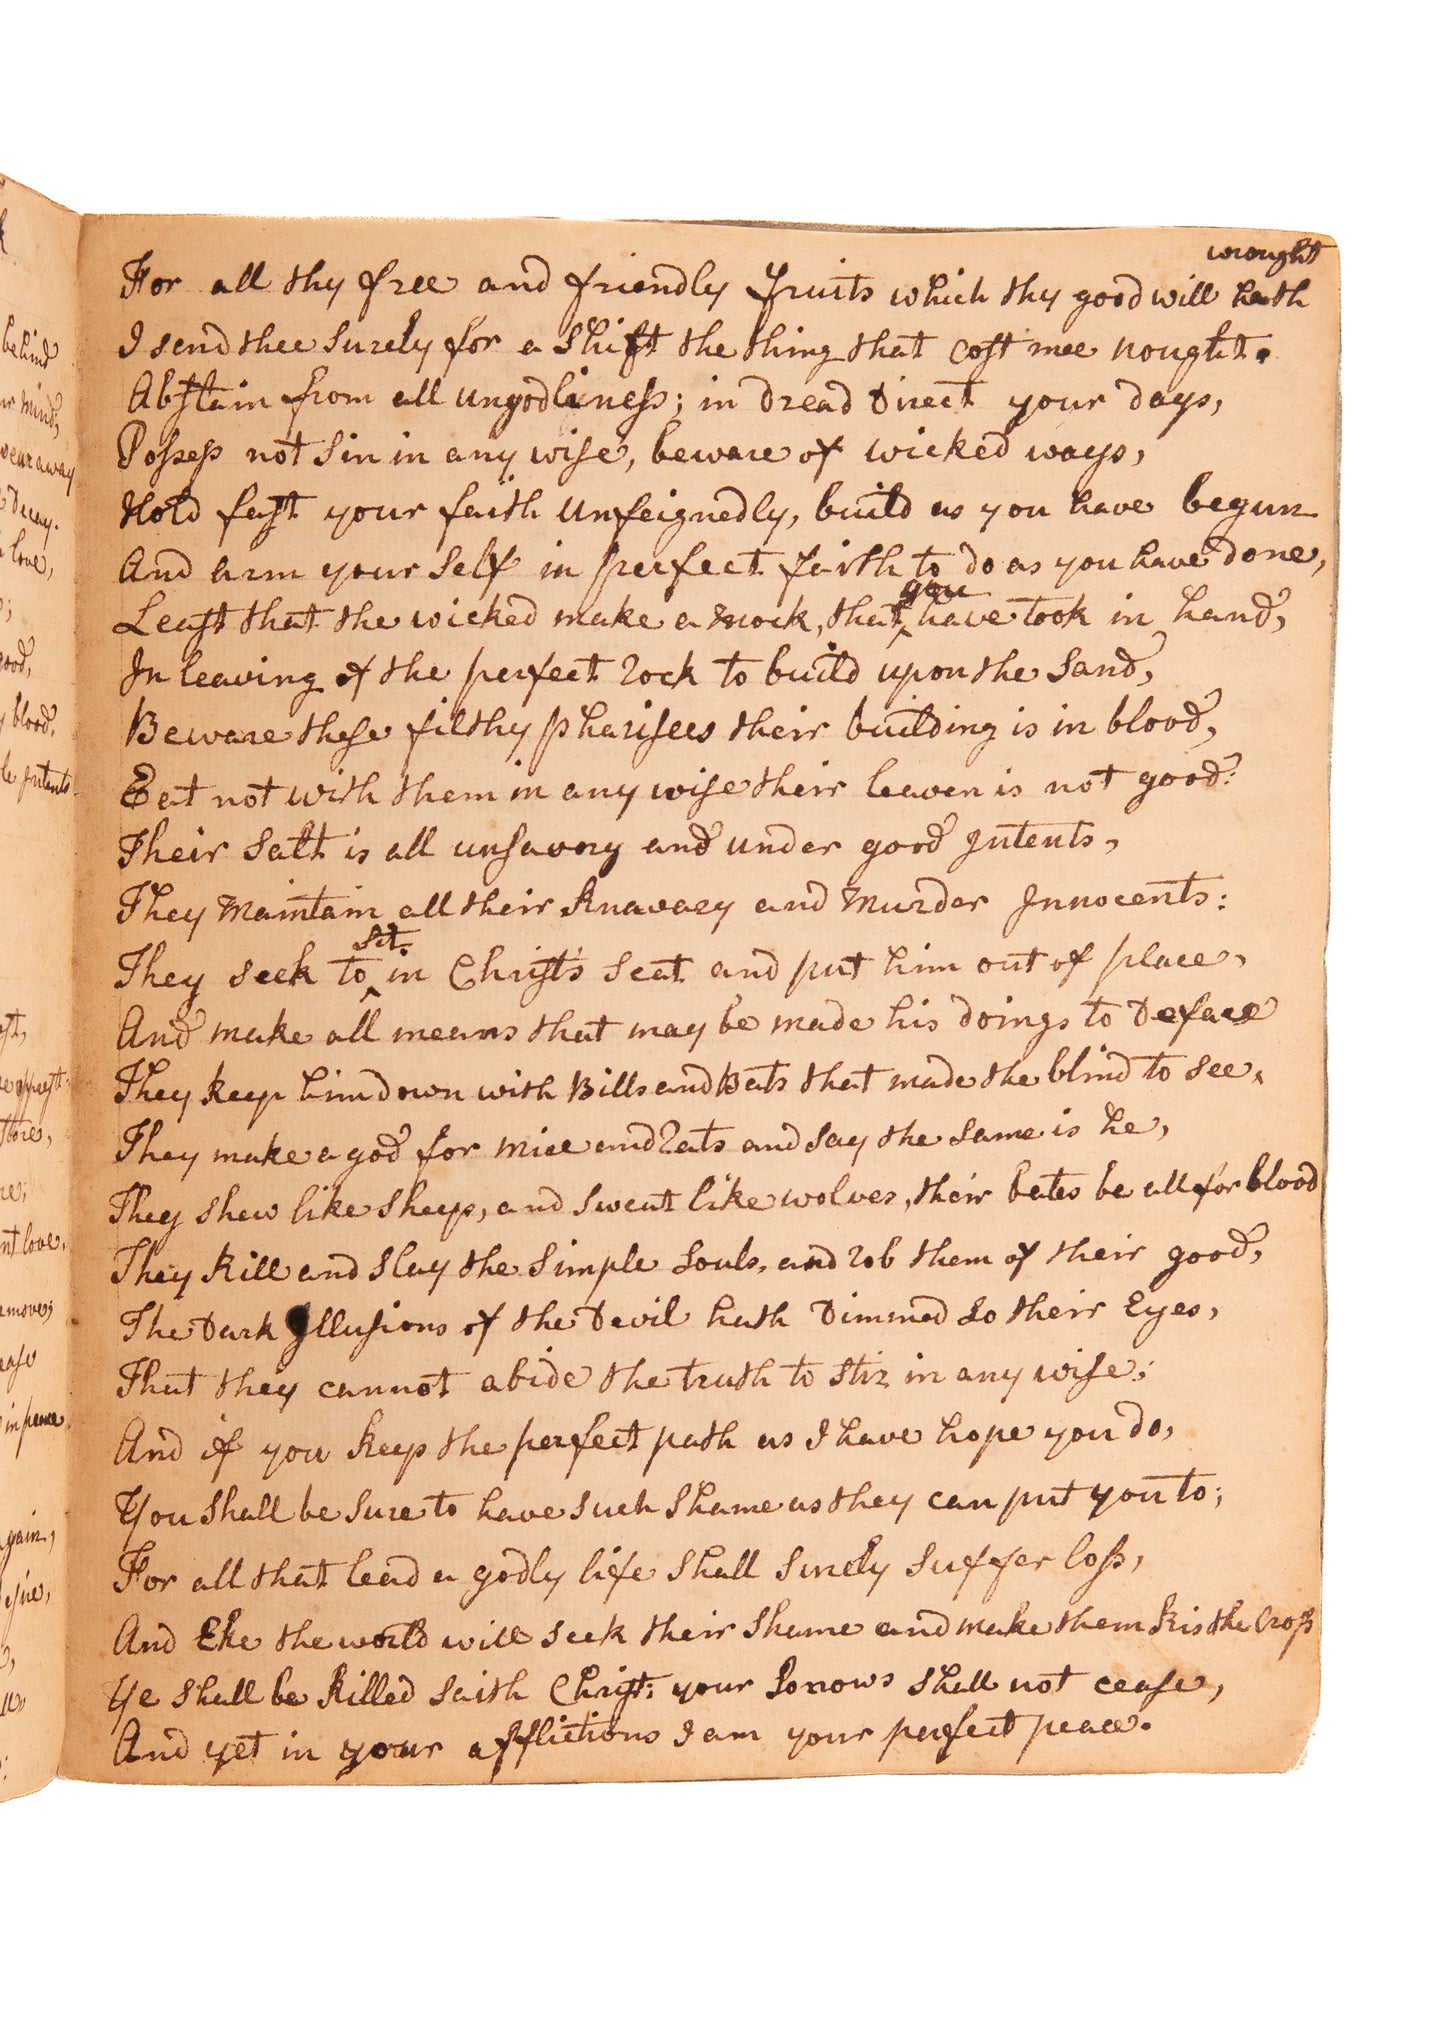 wrought
For all thy free and friendly fruits which thy good will hath
I send thee surely for a shift the thing that cost mee nought.
Abstain from all ungodliness; in dread Direct your days,
Possess not sin in any wise, beware of wicked ways,
Hold fast your faith unfeignedly, build as you have begun
And arm your self in perfect faith to do as you have done,
you
Least that the wicked make a mock, that ^ have took in hand,
In leaving of the perfect rock to build upon the sand,
Beware these filthy pharisees their building is in blood,
Eat not with them in any wise their leaven is not good:
Their Salt is all unsavory and under good Intents,
They Maintain all their Knavary and Murder Innocents:
sit.
They seek to ^ in Christ's seat and put him out of place,
And make all means that may be made his doings to Deface
They keep him down with Bills and Bats that made the blind to see,
They make a god for mice and rats and say the same is he,
They shew like sheep, and sweat like wolves, their bates be all for blood
They kill and slay the simple souls, and rob them of their good,
The Dark Illusions of the Devil hath Dimmed so their Eyes,
That they cannot abide the truth to stir in any wise:
And if you keep the perfect path as I have hope you do,
You shall be sure to have such shame as they can put you to;
For all that lead a godly life shall surely suffer loss,
And Eke the world will seek their shame and make them kis the Cross
Ye shall be killed saith Christ: your Sorrows shall not cease,
And yet in your afflictions I am your perfect peace.
behind
Mind;
wear away
Decay.
love,
good,
blood.
Intents
love.
in peace
gain,